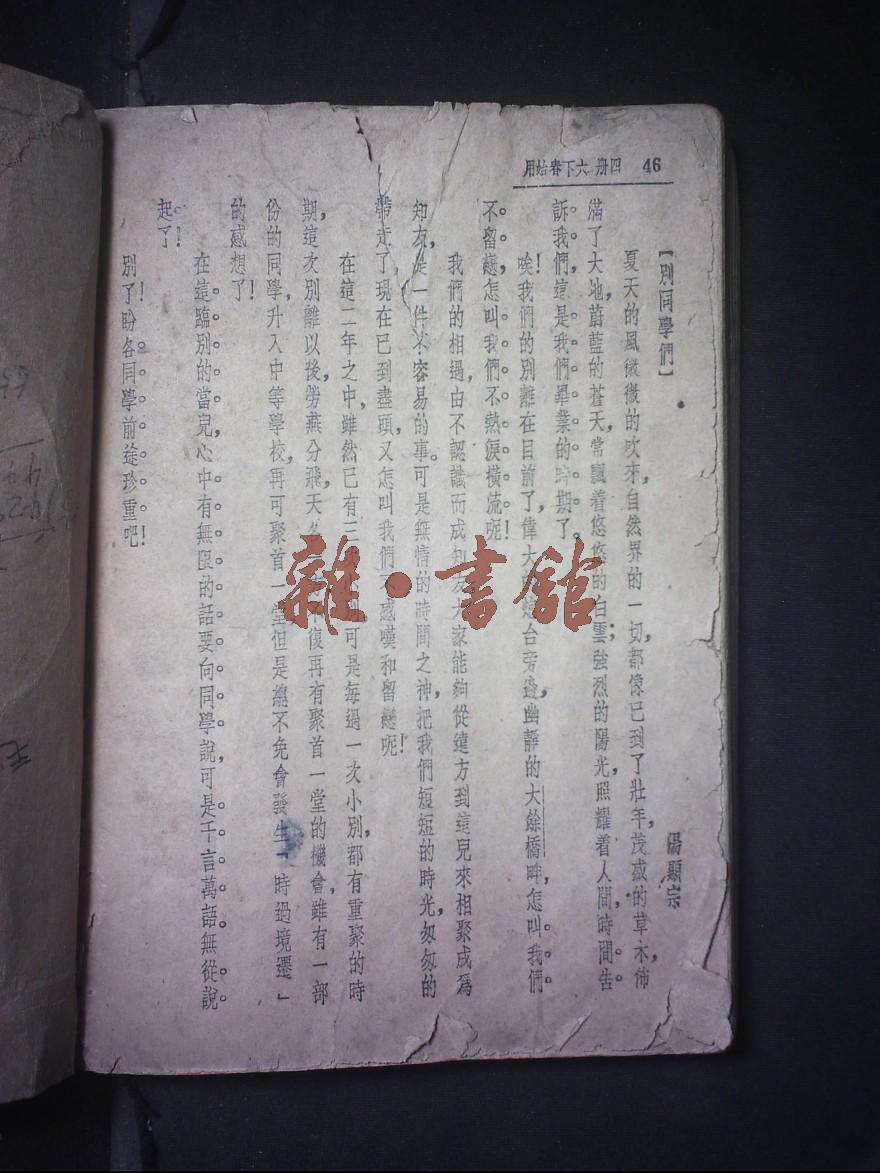 46 四册 六下春始用
【别同學們】
傷顯宗
夏天的風微微的吹來，自然界的一切，都像已到了壯年，茂盛的草木，佈
滿了大地，蔚藍的蒼天，常飄着悠悠的白雲；強烈的陽光，照耀着人間，時間告
訴我們，這是我們畢業的時期了。
唉！我們的別離在目前了，偉大 台旁邊，幽靜的大餘橋畔，怎叫我們
不留戀，怎叫我們不熱淚橫流呢！
我們的相遇，由不認識而成知友，大家能夠從遠方到這兒來相聚成爲
知友，是一件不容易的事。可是無情的時間之神，把我們短短的時光，匆匆的
帶走了，現在已到盡頭，又怎叫我們不感嘆和留戀呢！
在這二年之中，雖然已有三 可是每過一次小別，都有重聚的時
期，這次別離以後，勞燕分飛，天各 復再有聚首一堂的機會，雖有一部
份的同學，升入中等學校，再可聚首一堂，但是總不免會發生「時過境遷」
的感想了！
在這臨別的當兒，心中有無限的話要向同學說，可是千言萬語，無從說
起了！
別了！盼各同學前途珍重吧！
雜·書館